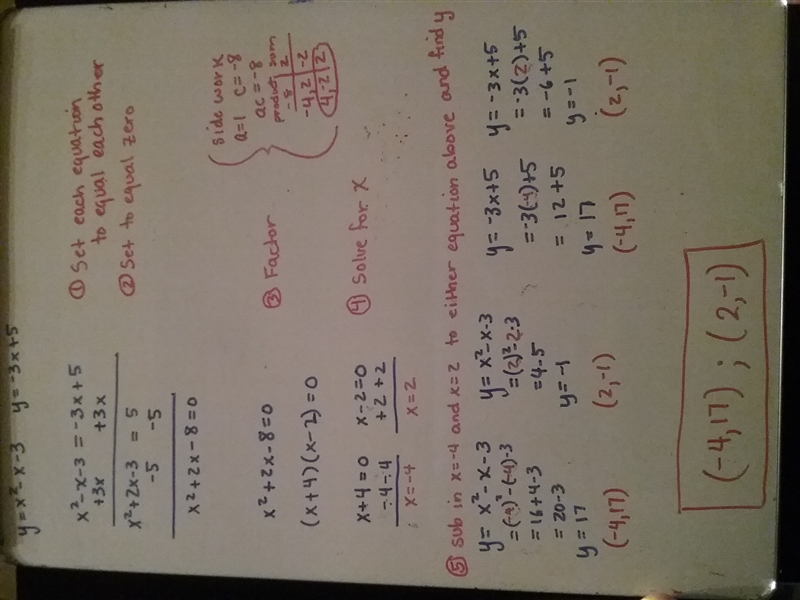 y = x² - x - 3   y = -3x + 5
x² - x - 3 = -3x + 5
+3x   +3x
① Set each equation
to equal each other
x² + 2x - 3 = 5
-5   -5
② Set to equal zero
x² + 2x - 8 = 0
Side work
a=1 c=-8
ac=-8
product sum
-8 2
-4, 2 -2
4, -2 2
x² + 2x - 8 = 0
③ Factor
(x+4)(x-2) = 0
x+4=0   x-2=0
-4 -4   +2 +2
x=-4   x=2
④ Solve for X
⑤ sub in x=-4 and x=2 to either equation above and find y
y = x² - x - 3
= (-4)² - (-4) - 3
= 16 + 4 - 3
= 20 - 3
y = 17
(-4, 17)
y = x² - x - 3
= (2)² - 2 - 3
= 4 - 5
y = -1
(2, -1)
y = -3x + 5
= -3(-4) + 5
= 12 + 5
y = 17
(-4, 17)
y = -3x + 5
= -3(2) + 5
= -6 + 5
y = -1
(2, -1)
(-4, 17) ; (2, -1)